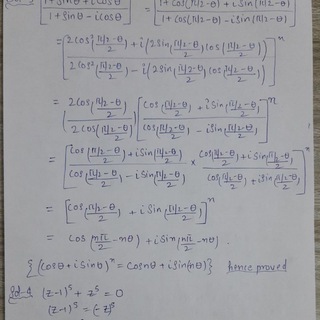 [1+Sinθ+iCosθ / 1+Sinθ-iCosθ]ⁿ = [1+Cos(π/2-θ)+iSin(π/2-θ) / 1+Cos(π/2-θ)-iSin(π/2-θ)]
[2Cos²(π/2-θ)/2 + i(2Sin(π/2-θ)/2 Cos(π/2-θ)/2) / 2Cos²(π/2-θ)/2 - i(2Sin(π/2-θ)/2 Cos(π/2-θ)/2)]ⁿ
= (2Cos(π/2-θ)/2 / 2Cos(π/2-θ)/2) [Cos(π/2-θ)/2 + iSin(π/2-θ)/2 / Cos(π/2-θ)/2 - iSin(π/2-θ)/2]ⁿ
= [Cos(π/2-θ)/2 + iSin(π/2-θ)/2 / Cos(π/2-θ)/2 - iSin(π/2-θ)/2 × Cos(π/2-θ)/2 + iSin(π/2-θ)/2 / Cos(π/2-θ)/2 + iSin(π/2-θ)/2]ⁿ
= [Cos(π/2-θ)/2 + iSin(π/2-θ)/2]ⁿ
= Cos(nπ/2 - nθ) + iSin(nπ/2 - nθ).
{(Cosθ+iSinθ)ⁿ = Cosnθ + iSin(nθ)} hence proved
(z-1)⁵ + z⁵ = 0
(z-1)⁵ = (-z)⁵